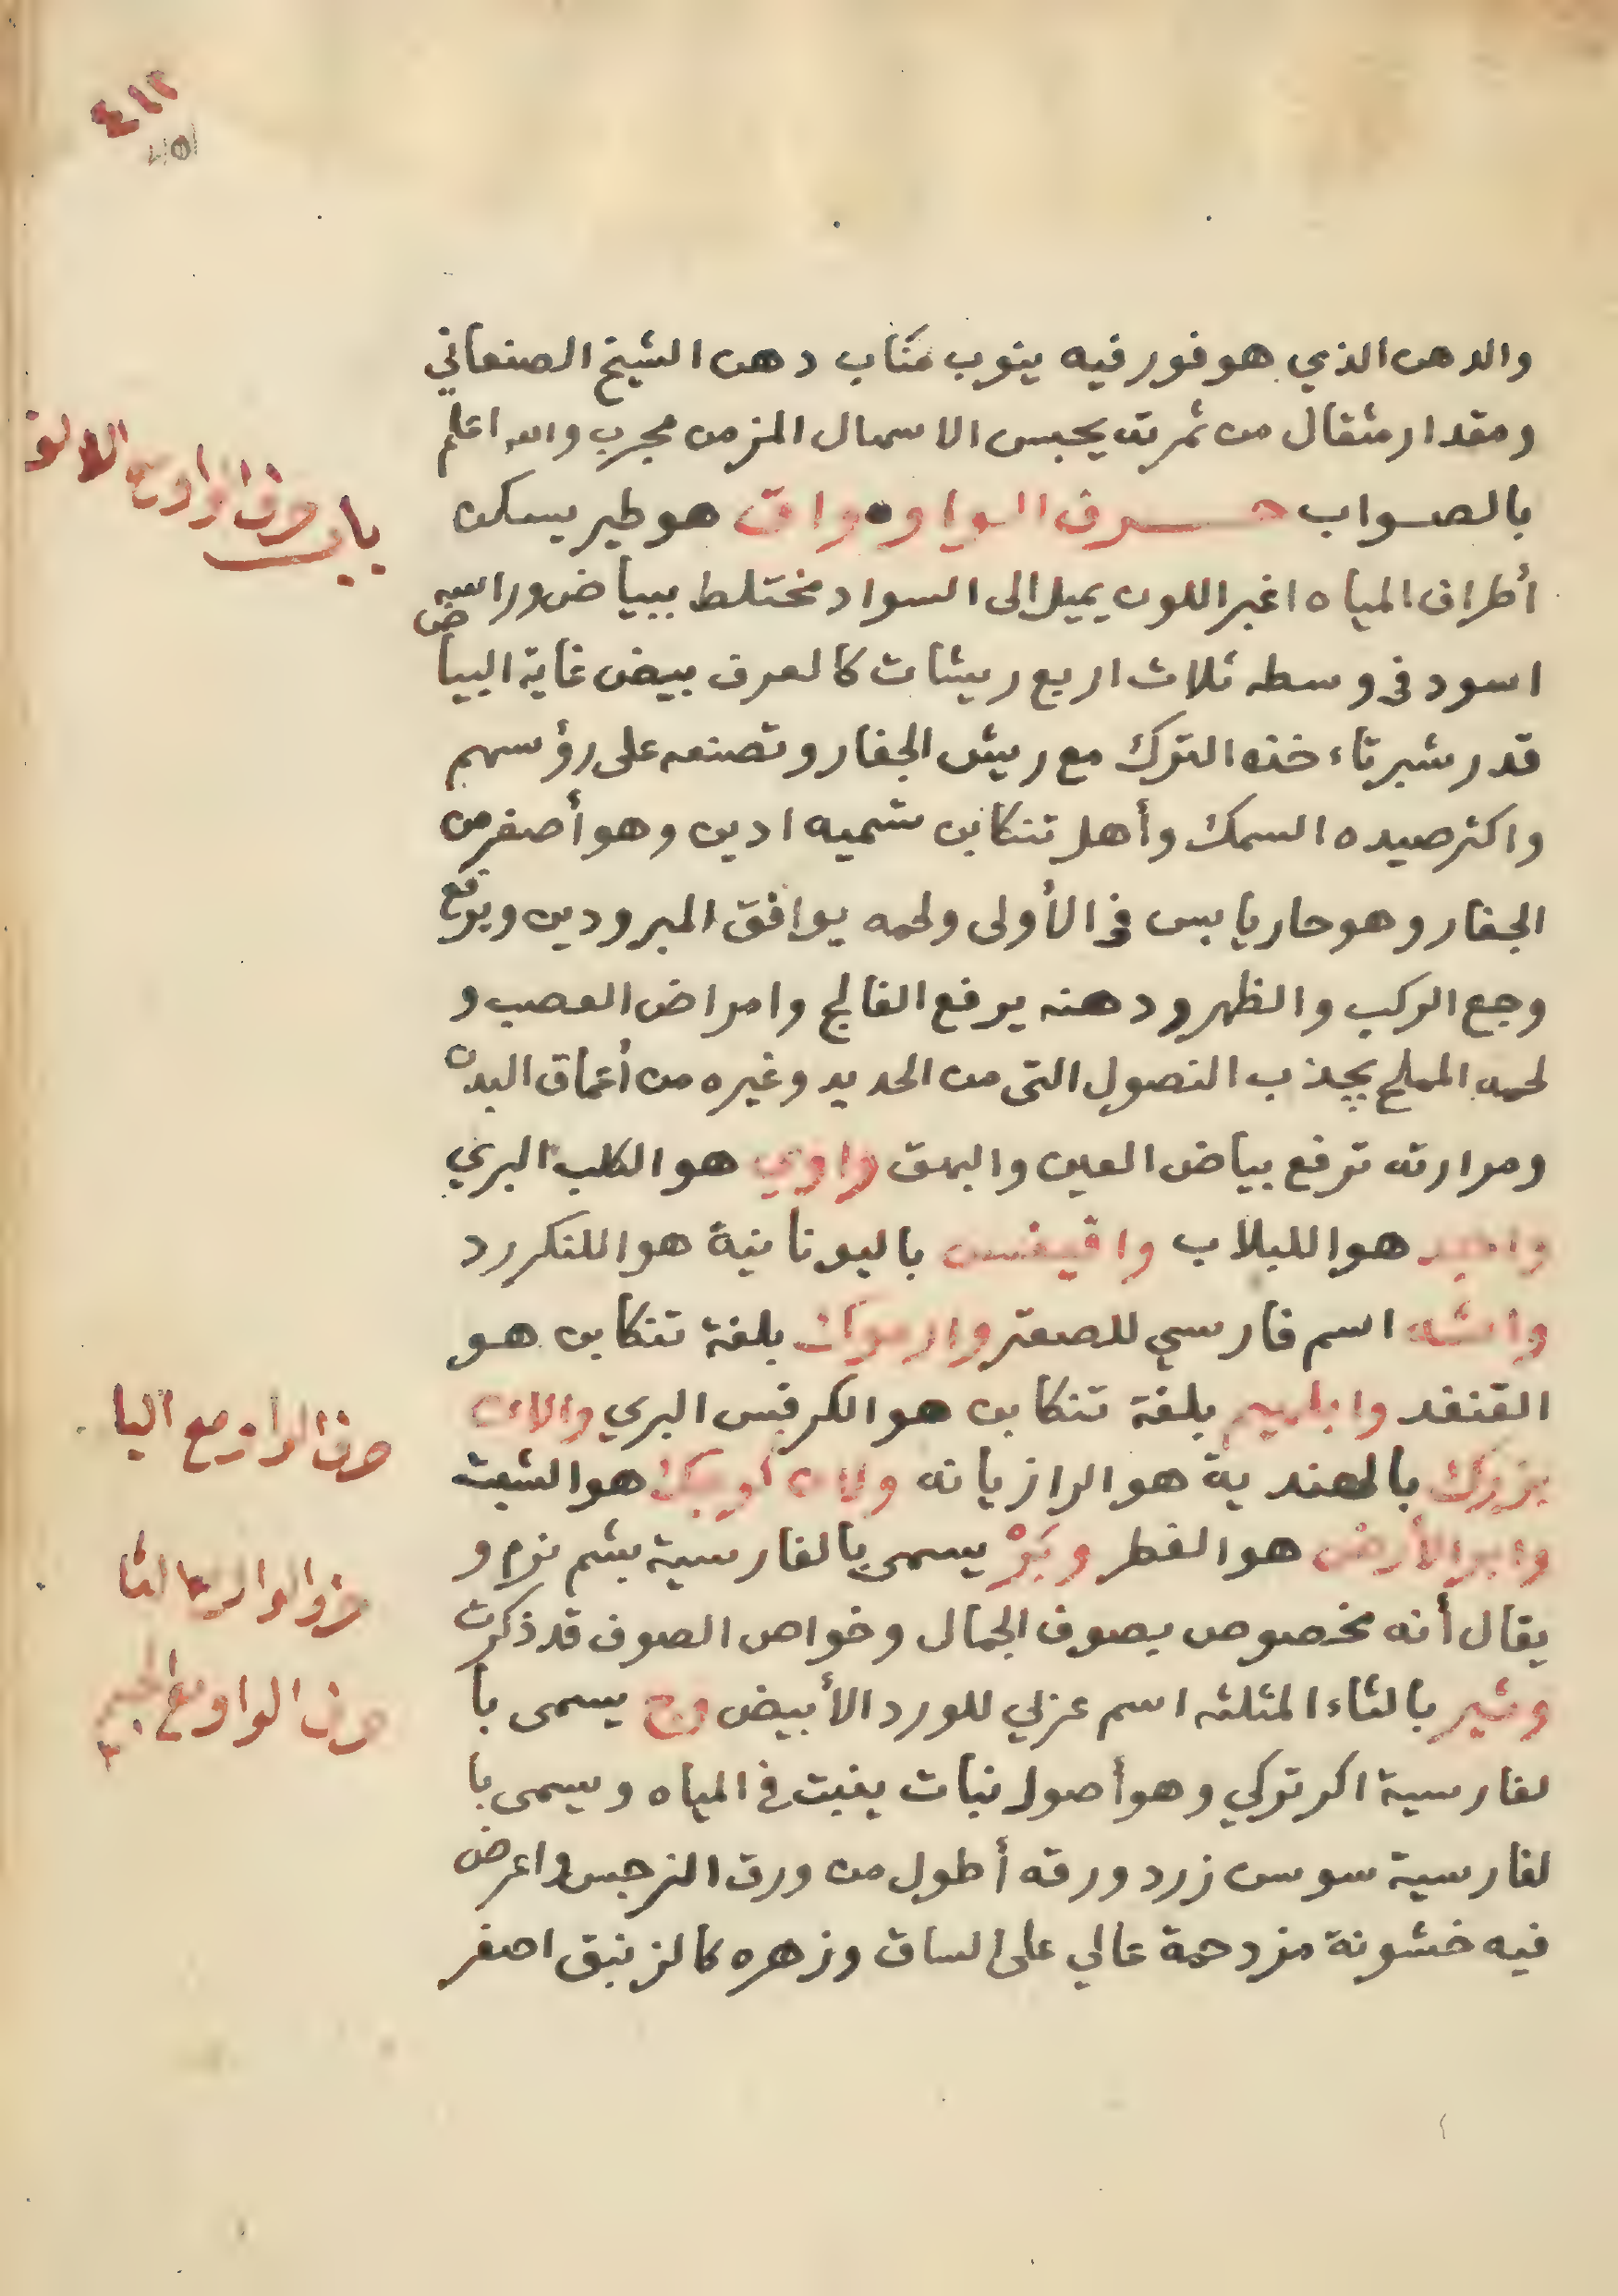 ٤١٢
والدهن الذي هو فور فيه ينوب مناب دهن الشيخ الصنعاني
ومقدار مثقال من ثمرته يحبس الاسهال المزمن مجرب والله اعلم
بالصواب حرف الواو واق هو طير يسكن
أطراف المياه اغبر اللون يميل الى السواد مختلط ببياض وراسه
اسود في وسطه ثلاث اربع ريشات كالعرف بيض غاية البياض
قدر شبر تاءخذه الترك مع ريش الجفار وتصنعه على رؤسهم
واكثر صيده السمك وأهل تنكابن تسميه ادين وهو أصغر من
الجفار وهو حار يابس في الأولى ولحمه يوافق المبرودين ويرفع
وجع الركب والظهر ودهنه يرفع الفالج وامراض العصب و
لحمه المملح يجذب النصول التى من الحديد وغيره من أعماق البدن
ومرارته ترفع بياض العين والبهق واوي هو الكلب البري
هو اللبلاب باليونانية هو اللنكررد
اسم فارسي للصعتر بلغة تنكابن هو
القنفد بلغة تنكابن هو الكرفس البري والان
بزرك بالهندية هو الرازيانه ولان هو الشبت
وابر الأرض هو الفطر وبر يسمى بالفارسية بشم نرم و
يقال أنه مخصوص بصوف الجمال وخواص الصوف قد ذكرت
وثير بالثاء المثلثه اسم عربي للورد الأبيض وج يسمى با
لفارسية اكر تركي وهو أصول نبات ينبت في المياه ويسمى با
لفارسية سوسن زرد ورقه أطول من ورق النرجس واعرض
فيه خشونة مزدحمة عالي على الساق وزهره كالزنبق اصفر
باب حرف الواو مع الالف
حرف الواو مع اليا
حرف الواو مع الثا
حرف الواو مع الجيم